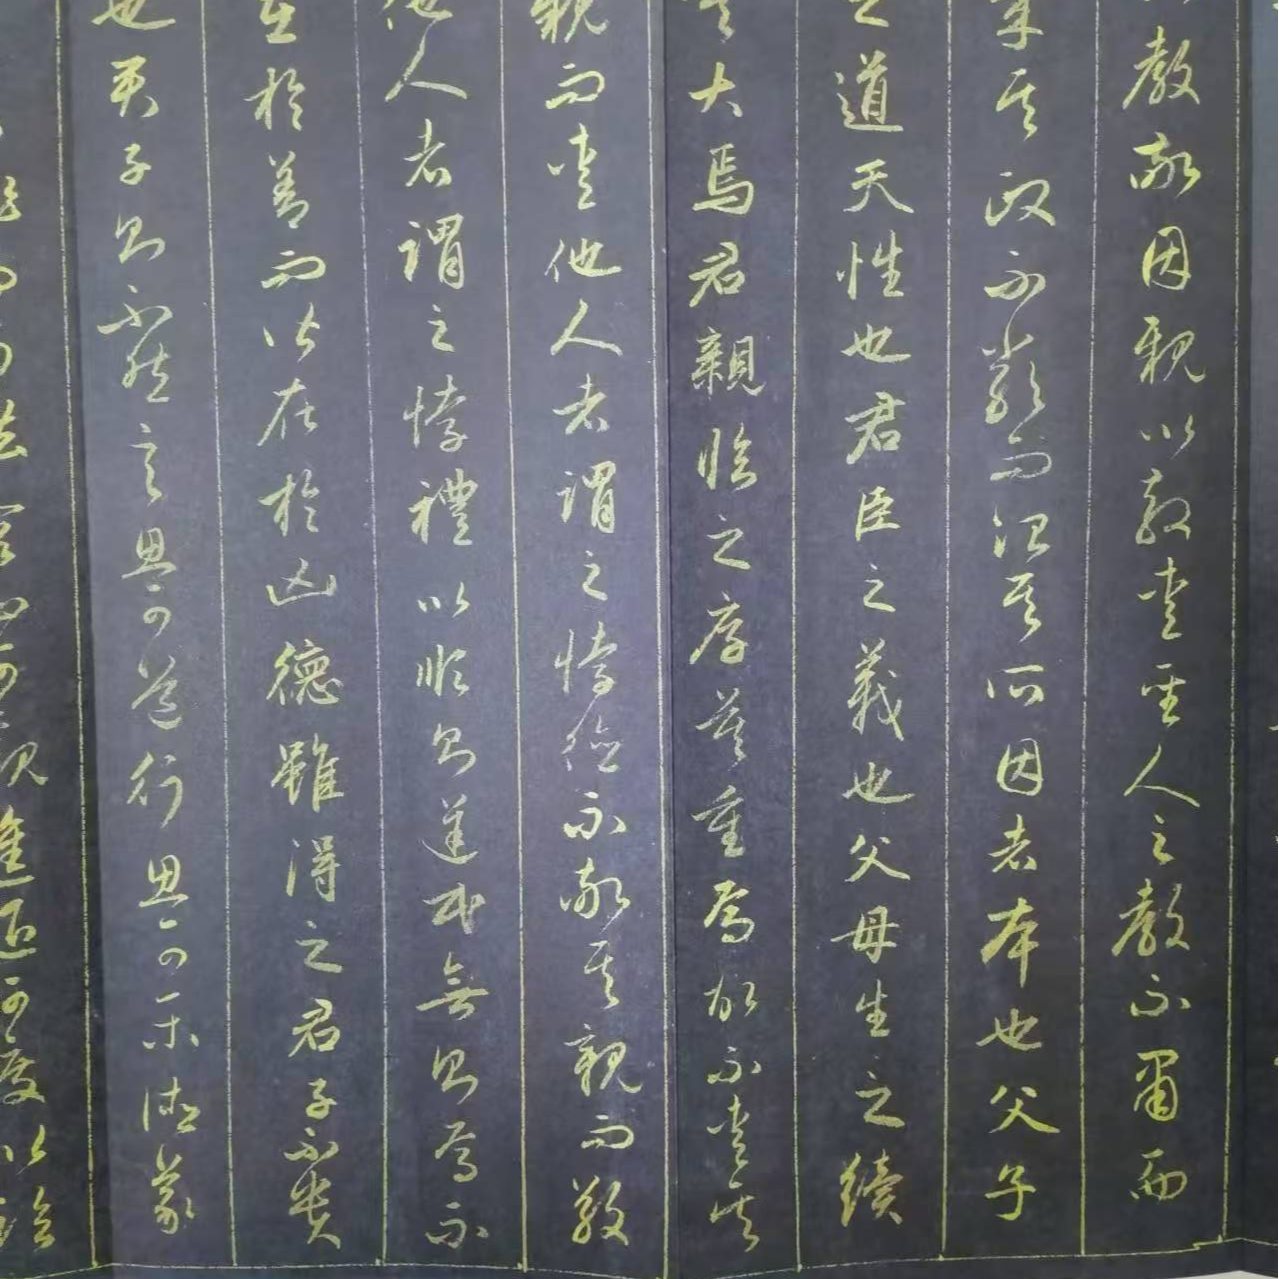 教敬因親以教愛聖人之教不肅而
成其政不嚴而治其所因者本也父子
之道天性也君臣之義也父母生之續
莫大焉君親臨之厚莫重焉故不愛其
親而愛他人者謂之悖德不敬其親而敬
他人者謂之悖禮以順則逆民無則焉不
在於善而皆在於凶德雖得之君子不貴
也君子則不然言思可道行思可樂德義
可法容止可觀進退可度以臨